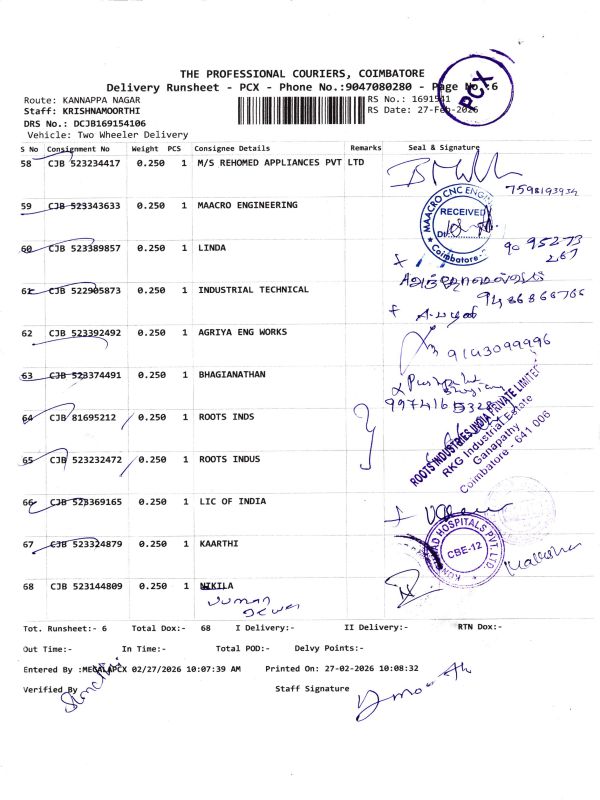 THE PROFESSIONAL COURIERS, COIMBATORE
Delivery Runsheet - PCX - Phone No.:9047080280 - Page No.:6
PCX
Route: KANNAPPA NAGAR
RS No.: 1691541
Staff: KRISHNAMOORTHI
RS Date: 27-Feb-2026
DRS No.: DCJB169154106
Vehicle: Two Wheeler Delivery
S No Consignment No Weight PCS Consignee Details Remarks Seal & Signature
58 CJB 523234417 0.250 1 M/S REHOMED APPLIANCES PVT LTD
7598193934
59 CJB 523343633 0.250 1 MAACRO ENGINEERING
MAACRO CNC ENGIN
RECEIVED
Dt.
Coimbatore
60 CJB 523389857 0.250 1 LINDA
90 95273
267
61 CJB 522905873 0.250 1 INDUSTRIAL TECHNICAL
9486866766
62 CJB 523392492 0.250 1 AGRIYA ENG WORKS
9143099996
63 CJB 523374491 0.250 1 BHAGIANATHAN
997416 5328
64 CJB 81695212 0.250 1 ROOTS INDS
ROOTS INDUSTRIES INDIA PRIVATE LIMITED
RKG Industrial Estate
Ganapathy
Coimbatore - 641 006
65 CJB 523232472 0.250 1 ROOTS INDUS
66 CJB 523369165 0.250 1 LIC OF INDIA
67 CJB 523324879 0.250 1 KAARTHI
HOSPITALS PVT. LTD
CBE-12
68 CJB 523144809 0.250 1 NIKILA
Tot. Runsheet:- 6 Total Dox:- 68 I Delivery:- II Delivery:- RTN Dox:-
Out Time:- In Time:- Total POD:- Delvy Points:-
Entered By :MEGALAPCX 02/27/2026 10:07:39 AM Printed On: 27-02-2026 10:08:32
Verified By
Staff Signature